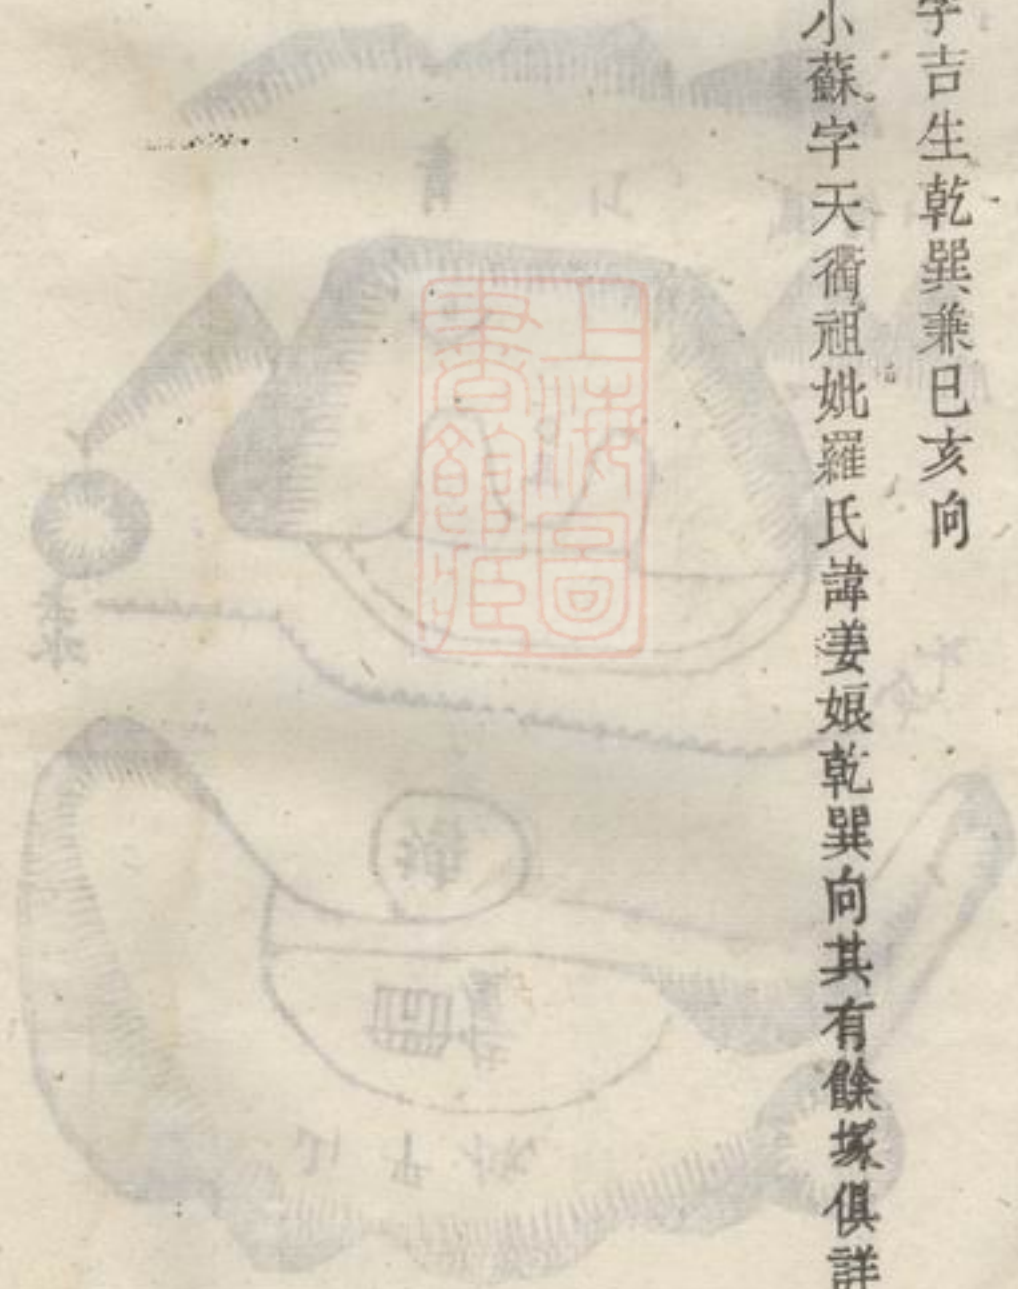 字吉生乾巽兼巳亥向
小蘇字天衢祖妣羅氏諱姜娘乾巽向其有餘塚俱詳
上海圖
書館藏